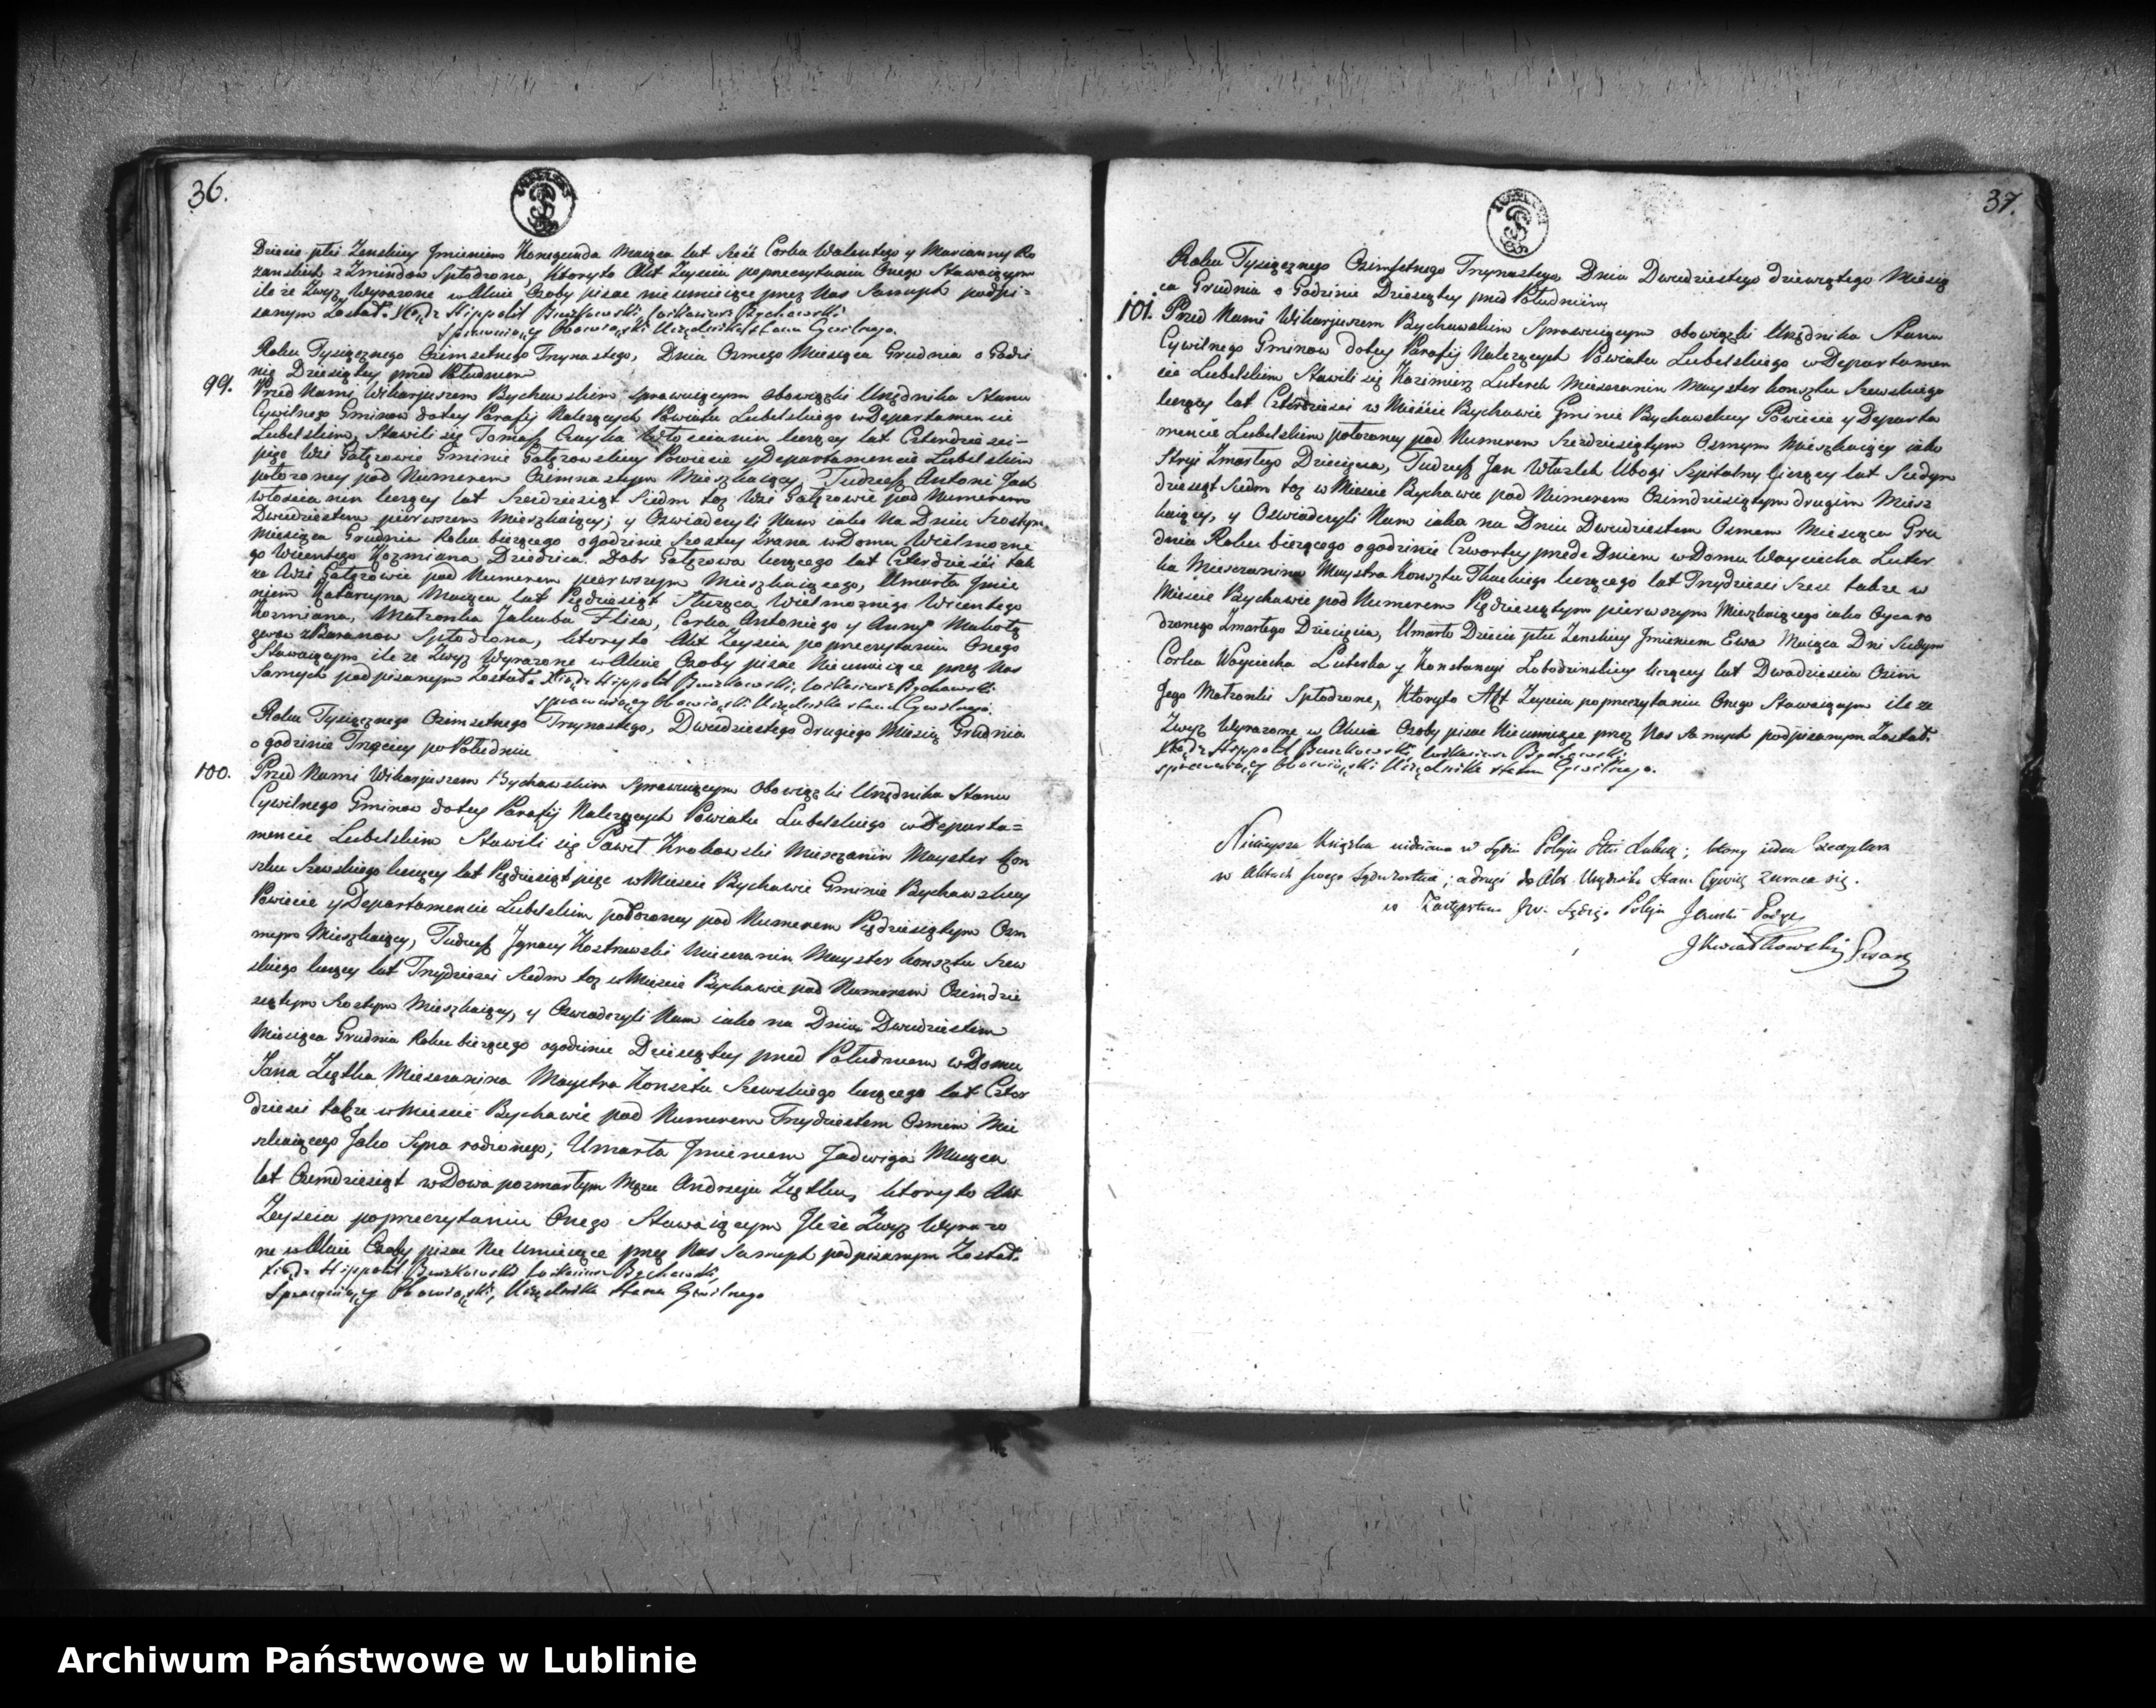 36.
Dziecię płci Zenskiey Jmieniem Konegunda Maiąca lat Sześć Corka Walentego y Maryanny Ro
zanskich z Zmindow Spłodzona, Ktoryto Akt Zeyscia poprzeczytaniu Onego Stawaiącym
ile że Zwyż Wyrażone w Akcie Osoby pisac nie umieiące przez Nas Samych podpi=
sanym Został. Xiądz Hippolit Buszkowski, Wikariusz Bychawski
Sprawuiący Obowiąski Urzędnika stanu Cywilnego.
Roku Tysiącznego Osimsetnego Trzynastego, Dnia Osmego Miesiąca Grudnia o Godzi
nie Dziesiątey przed Południem
99. Przed Nami Wikarjuszem Bychawskim Sprawuiącym obowiązki Urzędnika Stanu
Cywilnego Gminow dotey Parafij Należących Powiatu Lubelskiego w Departamencie
Lubelskim, Stawili się Tomasz Czayka Włoscianin liczący lat Czterdziesci
pięc Wsi Gałęzowie Gminie Gałęzowskiey Powiecie y Departamencie Lubelskim
położoney pod Numerem Osimnastym Mieszkaiący, Tudzież Antoni Jach
włoscianin liczący lat Szesdziesiąt Siedm toż Wsi Gałęzowie pod Numerem
Dwudziestem pierwszem Mieszkaiący; y Oswiadczyli Nam iako Na Dniu Szostym
Miesiąca Grudnia Roku bieżącego ogodzinie Szostey Zrana w Domu Wielmozne
go Wicentego Kozmiana Dziedzica Dobr Gałęzowa liczącego lat Czterdzieści tak
że Wsi Gałęzowie pod Numerem pierwszym Mieszkaiącego, Umarła Jmie
niem Katarzyna Maiąca lat Pięćdziesiąt Służąca Wielmoznego Wicentego
Kozmiana, Małżonka Jakuba Flisa, Corka Antoniego y Anny
Spłodzona, ktoryto Akt Zeyscia poprzeczytaniu Onego
Stawaiącym ile że Zwyż Wyrażone w Akcie Osoby pisac Nieumieiące przez Nas
Samych podpisanym Został. Xiądz Hippolit Buszkowski, Wikariusz Bychawski
Sprawuiący Obowiąski Urzędnika stanu Cywilnego.
Roku Tysiącznego Osimsetnego Trzynastego, Dwudziestego drugiego Miesią Grudnia
o godzinie Trzeciey po Południu
100. Przed Nami Wikarjuszem Bychawskim Sprawuiącym Obowiązki Urzędnika Stanu
Cywilnego Gminow dotey Parafij Należących Powiatu Lubelskiego w Departa=
mencie Lubelskim Stawili się Paweł Krakowski Mieszczanin Mayster Kon
sztu Szewskiego liczący lat Pięćdziesiąt pięc w Miescie Bychawie Gminie Bychawskiey
Powiecie y Departamencie Lubelskim położoney pod Numerem Pięćdziesiątym Osm
mym Mieszkaiący, Tudzież Jgnacy Kostrzewski Mieszczanin Mayster konsztu Szew
skiego liczący lat Trzydziesci Siedm toż w Miescie Bychawie pod Numerem Osimdzie
siątym Szostym Mieszkaiący, y Oswiadczyli Nam iako na Dniu Dwudziestem
Miesiąca Grudnia Roku bieżącego ogodzinie Dziesiątey przed Południem w Domu
Jana Ziętka Mieszczanina Maystra Konsztu Szewskiego liczącego lat Czter
dziesci także w Miescie Bychawie pod Numerem Trzydziestem Osmem Mie
szkaiącego Jako Syna rodzonego; Umarła Jmieniem Jadwiga Maiąca
lat Osemdziesiąt w Dowa pozmarłym Mężu Andrzeju Ziętku, ktoryto Akt
Zeyscia poprzeczytaniu Onego Stawaiącym Jleże Zwyż Wyrażo
ne w Akcie Osoby pisac Nie Umieiące przez Nas Samych podpisanym Został.
Xiądz Hippolit Buszkowski Wikariusz Bychawski,
Sprawuiący Obowiąski, Urzędnika Stanu Cywilnego
37.
Roku Tysiącznego Osimsetnego Trzynastego Dnia Dwudziestego dziewiątego Miesią
ca Grudnia o Godzinie Dziesiątey przed Południem
101. Przed Nami Wikarjuszem Bychawskim Sprawuiącym obowiązki Urzędnika Stanu
Cywilnego Gminow dotey Parafij Należących Powiatu Lubelskiego w Departamen
cie Lubelskim Stawili się Kazimierz Luterek Mieszczanin Mayster konsztu Szewskiego
liczący lat Czterdziesci w Mieście Bychawie Gminie Bychawskiey Powiecie y Departa
mencie Lubelskim położoney pod Numerem Szezdziesiątym Osmym Mieszkaiący iako
Stryi Zmarłego Dziecięcia, Tudzież Jan Wtuzlek Ubogi Szpitalny liczący lat Siedym
dziesiąt Siedm toż w Miescie Bychawie pod Numerem Osimdziesiątym drugim Miesz
kaiący, y Oswiadczyli Nam iako na Dniu Dwudziestem Osmem Miesiąca Gru
dnia Roku bieżącego ogodzinie Czwartey przede Dniem w Domu Woyciecha Luter
ka Mieszczanina Maystra Konsztu Tkackiego liczącego lat Trzydziesci Szesc także w
Miescie Bychawie pod Numerem Pięćdziesiątym pierwszym Mieszkaiącego iako Oyca ro
dzonego Zmarłego Dziecięcia, Umarło Dziecie płci Zenskiey Jmieniem Ewa Maiąca Dni Siedym
Corka Woyciecha Luterka y Konstancyi Łobodzinskiey liczącey lat Dwadziescia Osim
Jego Małżonki Spłodzone, Ktoryto Akt Zeyscia poprzeczytaniu Onego Stawaiącym ile że
Zwyż Wyrażone w Akcie Osoby pisac Nieumieiące przez Nas Samych podpisanym Został.
Xiądz Hippolit Buszkowski, Wikariusz Bychawski
Sprawuiący Obowiąski Urzędnika stanu Cywilnego.
Ninieysza Książka widziana w Sądzie Policyi; ktorey ieden Exemplarz
w Aktach swego Sądu; a drugi do Akt Urzędnika Stanu Cywil zwraca się.
w Zastępstwie Sędziego Policyi
J Kwiatkowski Pisarz
Archiwum Państwowe w Lublinie